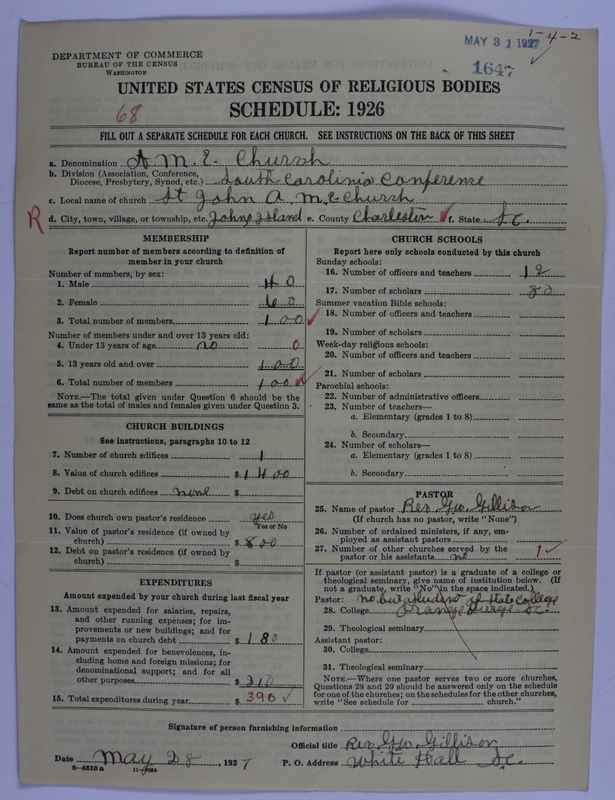 1-4-2
MAY 31 1927
1647
DEPARTMENT OF COMMERCE
BUREAU OF THE CENSUS
WASHINGTON
UNITED STATES CENSUS OF RELIGIOUS BODIES
68
SCHEDULE: 1926
FILL OUT A SEPARATE SCHEDULE FOR EACH CHURCH. SEE INSTRUCTIONS ON THE BACK OF THIS SHEET
a. Denomination A. M. E. Church
b. Division (Association, Conference, Diocese, Presbytery, Synod, etc.) South Carolinia Conference
c. Local name of church St John A. M. E Church
R d. City, town, village, or township, etc. Johns Island e. County Charleston f. State S. C.
MEMBERSHIP
Report number of members according to definition of member in your church
Number of members, by sex:
1. Male 40
2. Female 60
3. Total number of members 100
Number of members under and over 13 years old:
4. Under 13 years of age no 0
5. 13 years old and over 100
6. Total number of members 100
NOTE.—The total given under Question 6 should be the same as the total of males and females given under Question 3.
CHURCH BUILDINGS
See instructions, paragraphs 10 to 12
7. Number of church edifices 1
8. Value of church edifices $ 1400
9. Debt on church edifices none $
10. Does church own pastor's residence yes
Yes or No
11. Value of pastor's residence (if owned by church) $ 800
12. Debt on pastor's residence (if owned by church) $
EXPENDITURES
Amount expended by your church during last fiscal year
13. Amount expended for salaries, repairs, and other running expenses; for improvements or new buildings; and for payments on church debt $ 180
14. Amount expended for benevolences, including home and foreign missions; for denominational support; and for all other purposes $ 210
15. Total expenditures during year $ 390
CHURCH SCHOOLS
Report here only schools conducted by this church
Sunday schools:
16. Number of officers and teachers 12
17. Number of scholars 80
Summer vacation Bible schools:
18. Number of officers and teachers
19. Number of scholars
Week-day religious schools:
20. Number of officers and teachers
21. Number of scholars
Parochial schools:
22. Number of administrative officers
23. Number of teachers—
a. Elementary (grades 1 to 8)
b. Secondary
24. Number of scholars—
a. Elementary (grades 1 to 8)
b. Secondary
PASTOR
25. Name of pastor Rev. Gw. Gillison
(If church has no pastor, write "None")
26. Number of ordained ministers, if any, employed as assistant pastors
27. Number of other churches served by the pastor or his assistants no
If pastor (or assistant pastor) is a graduate of a college or theological seminary, give name of institution below. (If not a graduate, write "No" in the space indicated.)
Pastor: no but student of State College
28. College Orangeburge S.C.
29. Theological seminary
Assistant pastor:
30. College
31. Theological seminary
NOTE.—Where one pastor serves two or more churches, Questions 28 and 29 should be answered only on the schedule for one of the churches; on the schedules for the other churches, write "See schedule for church."
Signature of person furnishing information
Official title Rev. Gw. Gillison
Date May 28, 1927 P. O. Address White Hall S.C.
8-5518a